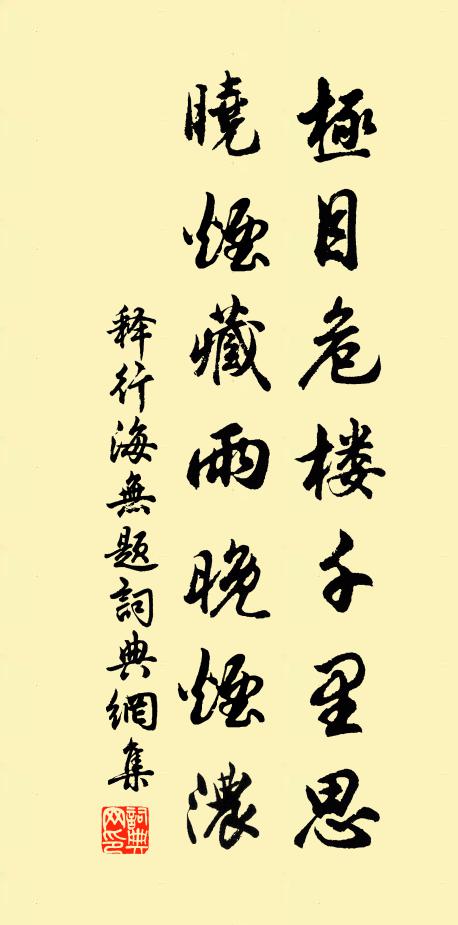 極目危楼千里思
曉煙藏雨晚煙濃
释行海無题詞典網集
詞典網印